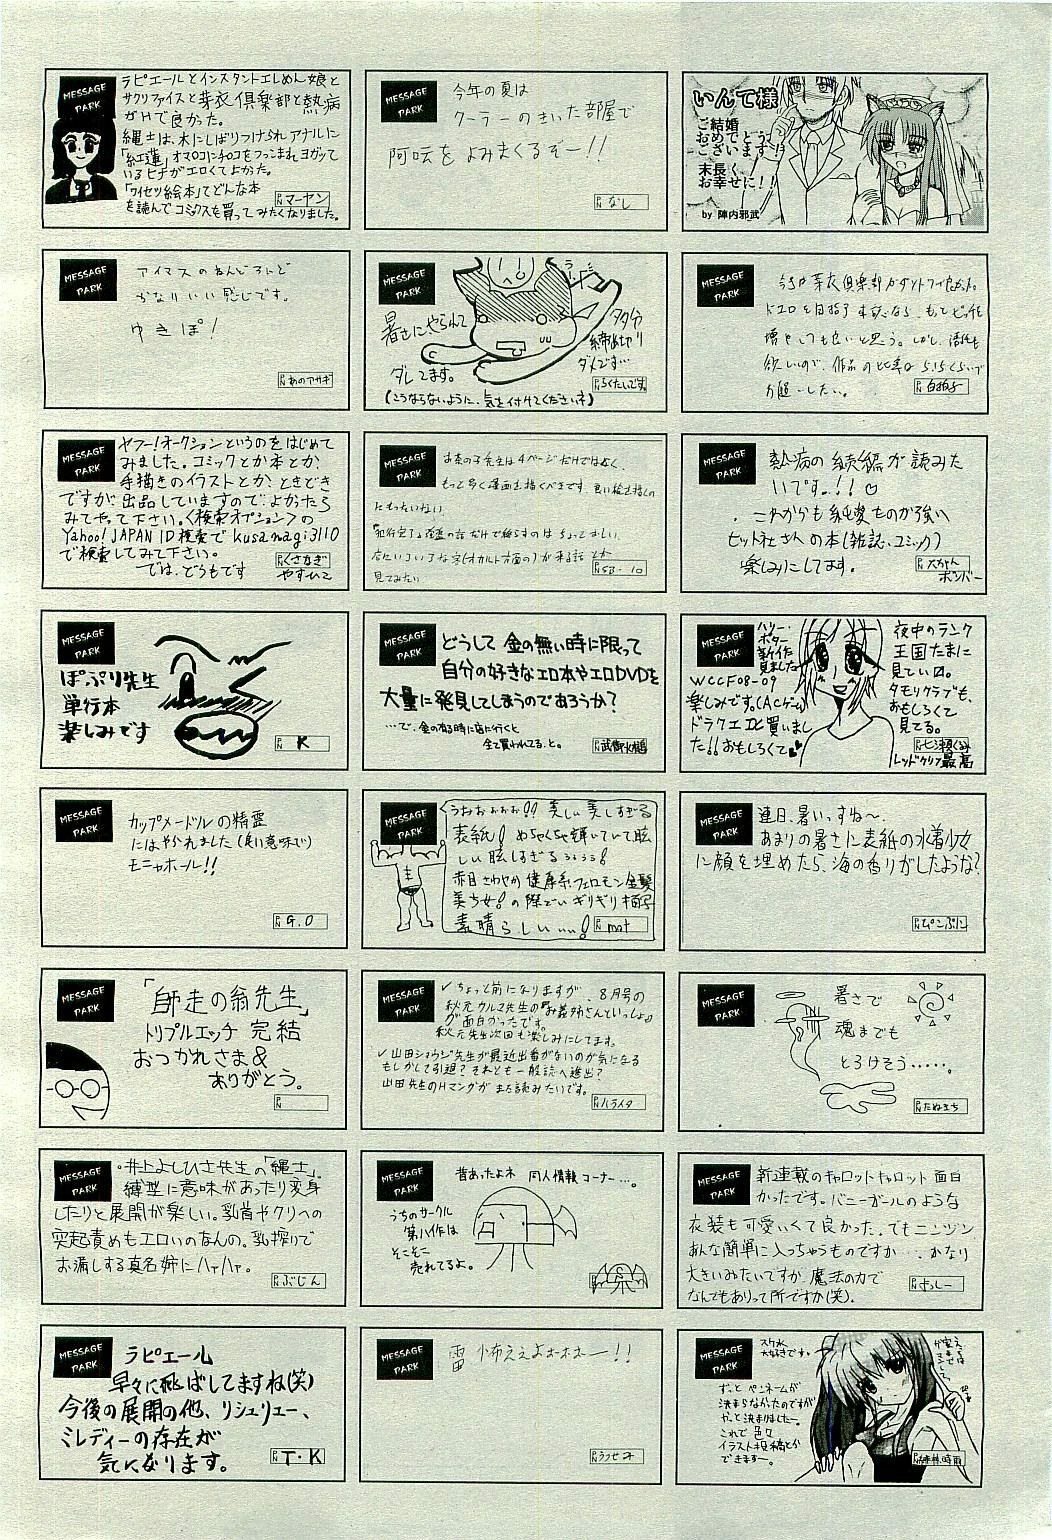 MESSAGE PARK
ラピエールとインスタントエレめん娘と
サクリファイスと芽衣倶楽部と熱病
がHで良かった。
縄士は、木にしばりつけられアナルに
「紅蓮」オマ〇コにチ〇コをつっこまれヨガって
いるヒナがエロくてよかった。
「ワイセツ絵本」てどんな本
を読んでコミックスを買ってみたくなりました。
PN マーヤン
MESSAGE PARK
今年の夏は
クーラーのきいた部屋で
阿吽をよみまくるぞー!!
PN なし
いんて様
ご結婚
おめでとう
ございます!
末長く
お幸せに!!
by 陣内邪武
MESSAGE PARK
アイマスのねんどろいど
かなりいい感じです。
ゆきぽ!
PN あのアサギ
MESSAGE PARK
暑さにやられて
ダレてます。
締め切り
ダメです…
PN らくたいです
(こうならないように、気を付けてくださいネ)
MESSAGE PARK
増やしても良いと思う。しかし、
欲しいので、作品の比率は5:15くらいで
お願いしたい。
PN 白拍子
MESSAGE PARK
ヤフー!オークションというのをはじめて
みました。コミックとか本とか、
手描きのイラストとか、ときどき
ですが、出品していますので、よかったら
みてやって下さい。〈検索オプション〉の
Yahoo! JAPAN ID検索で kusanagi3110
で検索してみて下さい。
では、どうもです
PN くさなぎやすひこ
MESSAGE PARK
お茶の子先生は4ページだけではなく、
もっと多く漫画を描くべきです。良い絵を描くの
にもったいない。
見てみたい
PN SB-10
MESSAGE PARK
熱病の続編が読みた
いです。!!♡
これからも純愛ものが強い
ヒット社さんの本(雑誌、コミック)
楽しみにしてます。
PN 大ちゃんボンバー
MESSAGE PARK
ぽぷり先生
単行本
楽しみです
PN K
MESSAGE PARK
どうして金の無い時に限って
自分の好きなエロ本やエロDVDを
大量に発見してしまうのであろうか?
…で、金の有る時に店に行くと
全て買われてる、と。
MESSAGE PARK
ハリー・
ポター
新作
見ました
WCCF08-09
楽しみです。(ACゲーム)
ドラクエⅨと買いまし
た!!おもしろくて
夜中のランク
王国たまに
見てい〼。
タモリクラブも、
おもしろくて
見てる。
PN 七瀬くるみ
レッドクリフ最高
MESSAGE PARK
カップメードルの精霊
にはやられました(良い意味で)
モニャホール!!
PN G.O
MESSAGE PARK
うおおおおお!!美しい美しすぎる
表紙!めちゃくちゃ輝いていて眩
しい眩しすぎるぅぅぅぅ!
赤目さわやか健康系フェロモン金髪
美少女!の際どいギリギリ描写
素晴らしいぃぃ!
PN mat
MESSAGE PARK
連日、暑いっすね~、
あまりの暑さに表紙の水着少女
に顔を埋めたら、海の香りがしたような?
PN ぴこぷに
MESSAGE PARK
「師走の翁先生」
トリプルエッチ 完結
おつかれさま&
ありがとう。
PN
MESSAGE PARK
✓ちょっと前になりますが、8月号の
秋元カルマ先生の『お義姉さんといっしょ』
が面白かったです。
秋元先生次回も楽しみにしてます。
✓山田ショウジ先生が最近出番がないのが気になる
もしかして引退?それとも一般誌へ進出?
山田先生のHマンガがまた読みたいです。
PN ハライタ
MESSAGE PARK
暑さで
魂までも
とろけそう・・・・・。
PN たぬきち
MESSAGE PARK
・井上よしひさ先生の「縄士」。
縛型に意味があったり変身
したりと展開が楽しい。乳首やクリへの
突起責めもエロいのなんの。乳搾りで
お漏しする真名姉にハァハァ。
PN ぶじん
MESSAGE PARK
昔あったよネ 同人情報コーナー…。
うちのサークル
第八作は
そこそこ
売れてるよ。
PN
MESSAGE PARK
新連載のキャロットキャロット面白
かったです。バニーガールのような
衣装も可愛いくて良かった。でもニンジン
あんな簡単に入っちゃうものですか・・・かなり
大きいみたいですが、魔法の力で
なんでもありって所ですか(笑)。
PN よっしー
MESSAGE PARK
ラピエール
早々に飛ばしてますね(笑)
今後の展開の他、リシュリュー、
ミレディーの存在が
気になります。
PN T・K
MESSAGE PARK
雷 怖ええよォホホー!!
PN うつせみ
MESSAGE PARK
スク水
大好きです。
ずっとペンネームが
決まらなかったのですが
やっと決まりましたー。
これで色々
イラスト投稿とか
できますー。